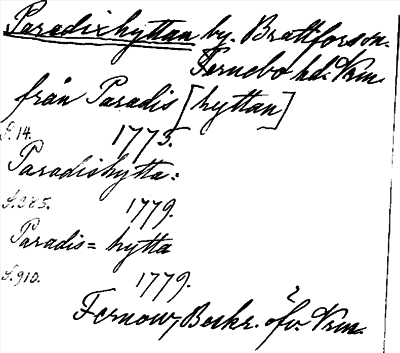 Paradishyttan by. Brattforson.
Fernebo hd. Vrm.
från Paradis [hyttan]
S. 14. 1773.
Paradishytta:
S. 385. 1779.
Paradis= hytta
S. 910. 1779.
Fernow, Beskr. öfv. Vrm.